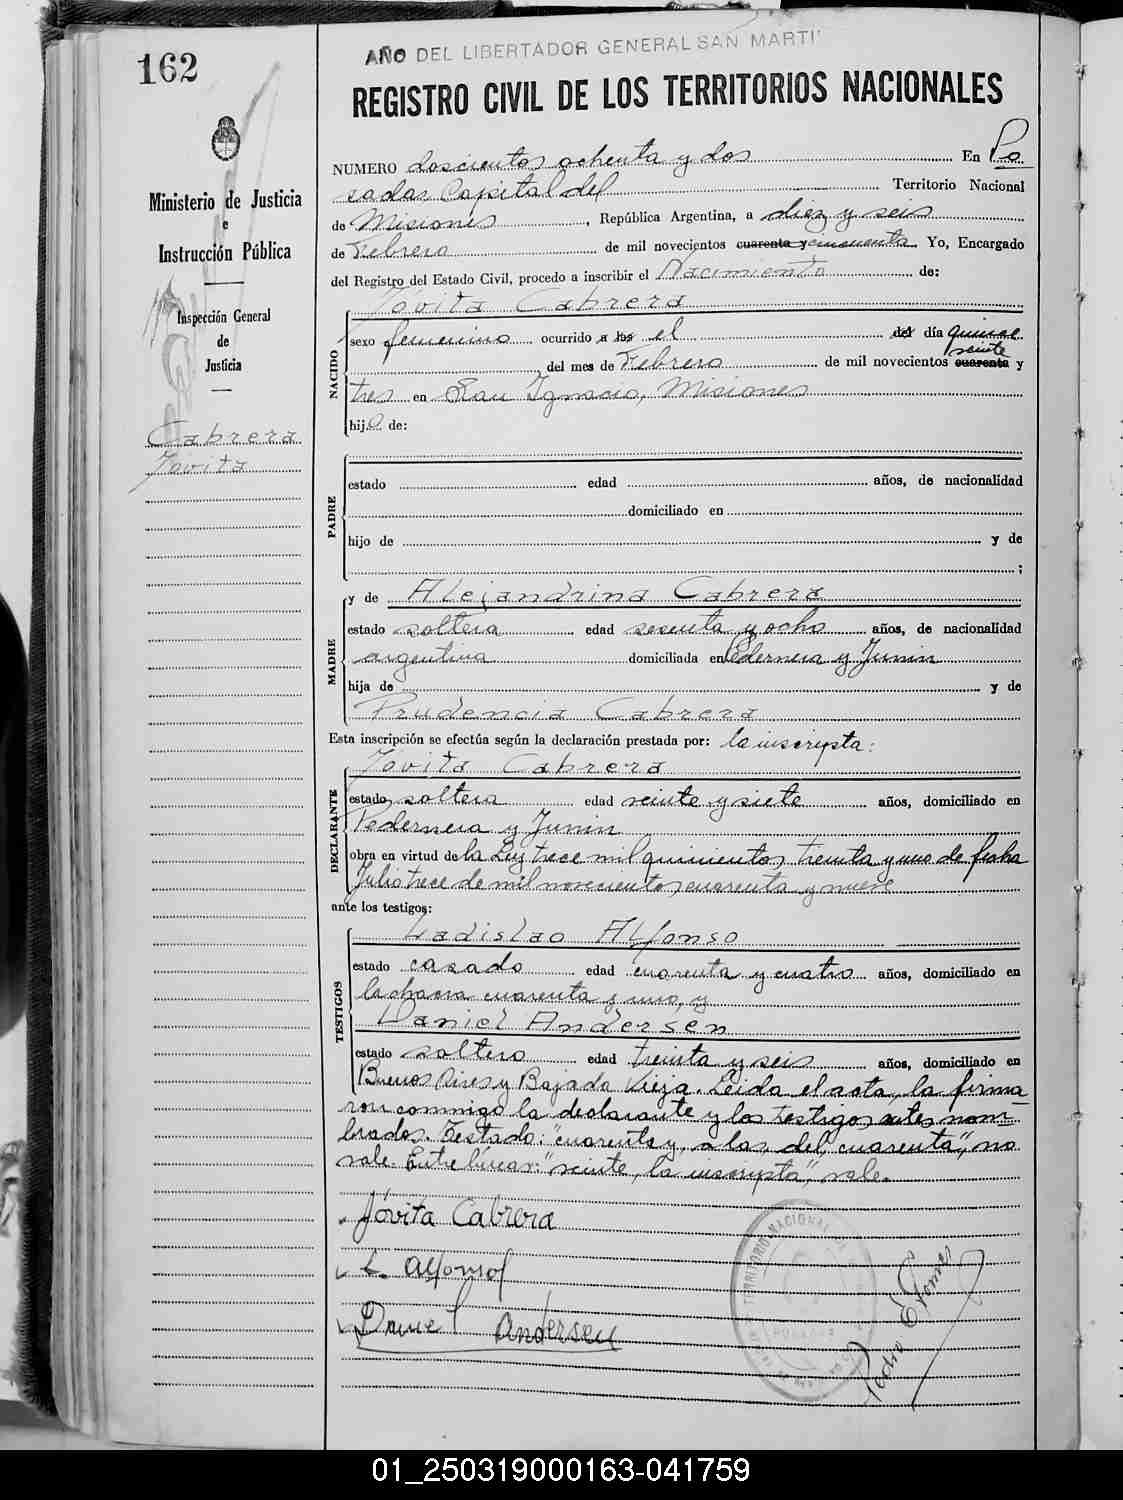 162
AÑO DEL LIBERTADOR GENERAL SAN MARTI
REGISTRO CIVIL DE LOS TERRITORIOS NACIONALES
Ministerio de Justicia
e
Instrucción Pública
Inspección General
de
Justicia
Cabrera
Jovita
NUMERO doscientos ochenta y dos En Po
sadas Capital del Territorio Nacional
de Misiones, República Argentina, a diez y seis
de Febrero de mil novecientos cuarenta y cincuenta. Yo, Encargado
del Registro del Estado Civil, procedo a inscribir el Nacimiento de:
Jovita Cabrera
NACIDO
sexo femenino ocurrido a las el del día quince
veinte
del mes de Febrero de mil novecientos cuarenta y
tres en San Ignacio, Misiones
hija de:
PADRE
estado edad años, de nacionalidad
domiciliado en
hijo de y de
;
MADRE
y de Alejandrina Cabrera
estado soltera edad sesenta y ocho años, de nacionalidad
argentina domiciliada en Pedernera y Junin
hija de y de
Prudencia Cabrera
Esta inscripción se efectúa según la declaración prestada por: la inscripta:
DECLARANTE
Jovita Cabrera
estado soltera edad veinte y siete años, domiciliado en
Pedernera y Junin
obra en virtud de la Ley trece mil quinientos treinta y uno de fecha
Julio trece de mil novecientos cuarenta y nueve
ante los testigos:
TESTIGOS
Ladislao Alfonso
estado casado edad cuarenta y cuatro años, domiciliado en
la chacra cuarenta y uno, y
Daniel Andersen
estado soltero edad treinta y seis años, domiciliado en
Buenos Aires y Bajada Vieja. Leida el acta, la firma-
ron conmigo la declarante y los testigos antes nom-
brados. Testado: "cuarenta y, a las, del, cuarenta", no
vale. Entre lineas: "veinte, la inscripta", vale.
Jóvita Cabrera
L. Alfonso
Daniel Andersen
TERRITORIO NACIONAL
POSADAS
Pedro E. Gomez
01_250319000163-041759